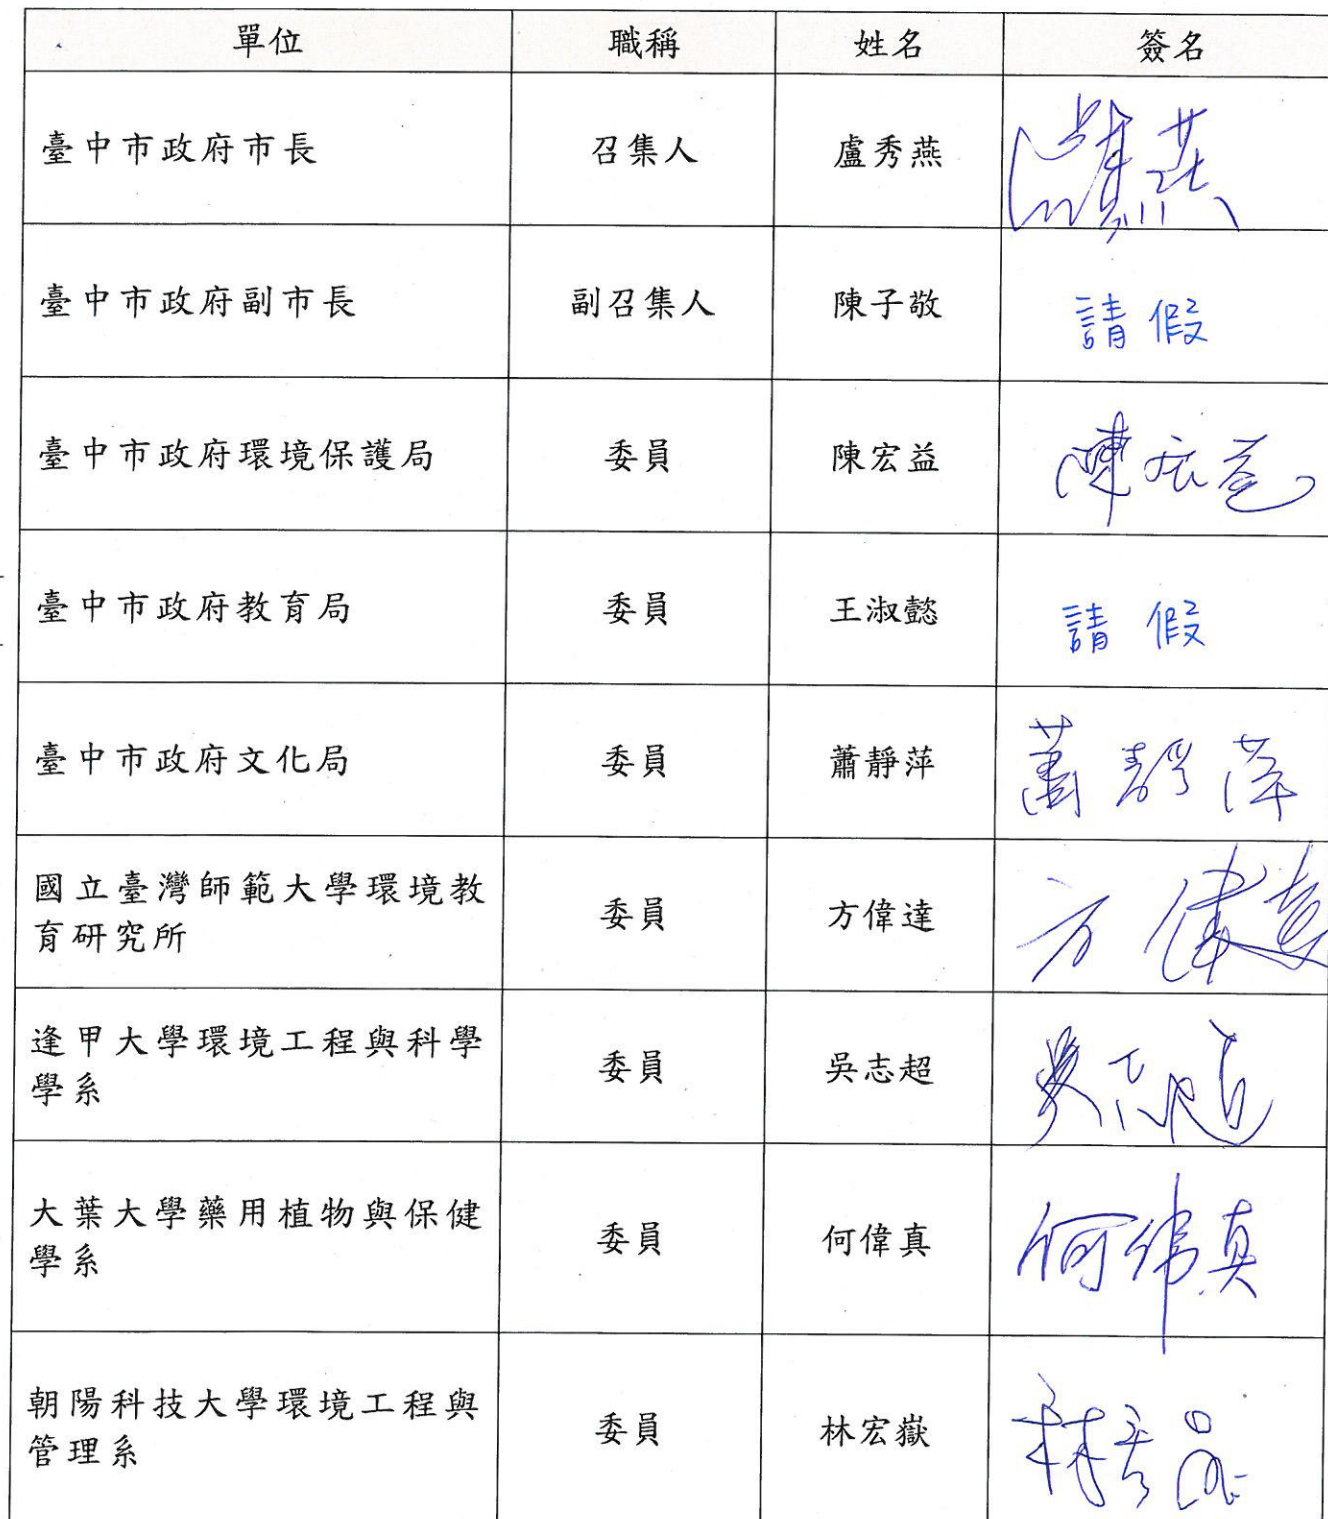 單位 職稱 姓名 簽名
臺中市政府市長 召集人 盧秀燕
臺中市政府副市長 副召集人 陳子敬 請假
臺中市政府環境保護局 委員 陳宏益 陳宏益
臺中市政府教育局 委員 王淑懿 請假
臺中市政府文化局 委員 蕭靜萍 蕭靜萍
國立臺灣師範大學環境教
育研究所 委員 方偉達 方偉達
逢甲大學環境工程與科學
學系 委員 吳志超 吳志超
大葉大學藥用植物與保健
學系 委員 何偉真 何偉真
朝陽科技大學環境工程與
管理系 委員 林宏嶽